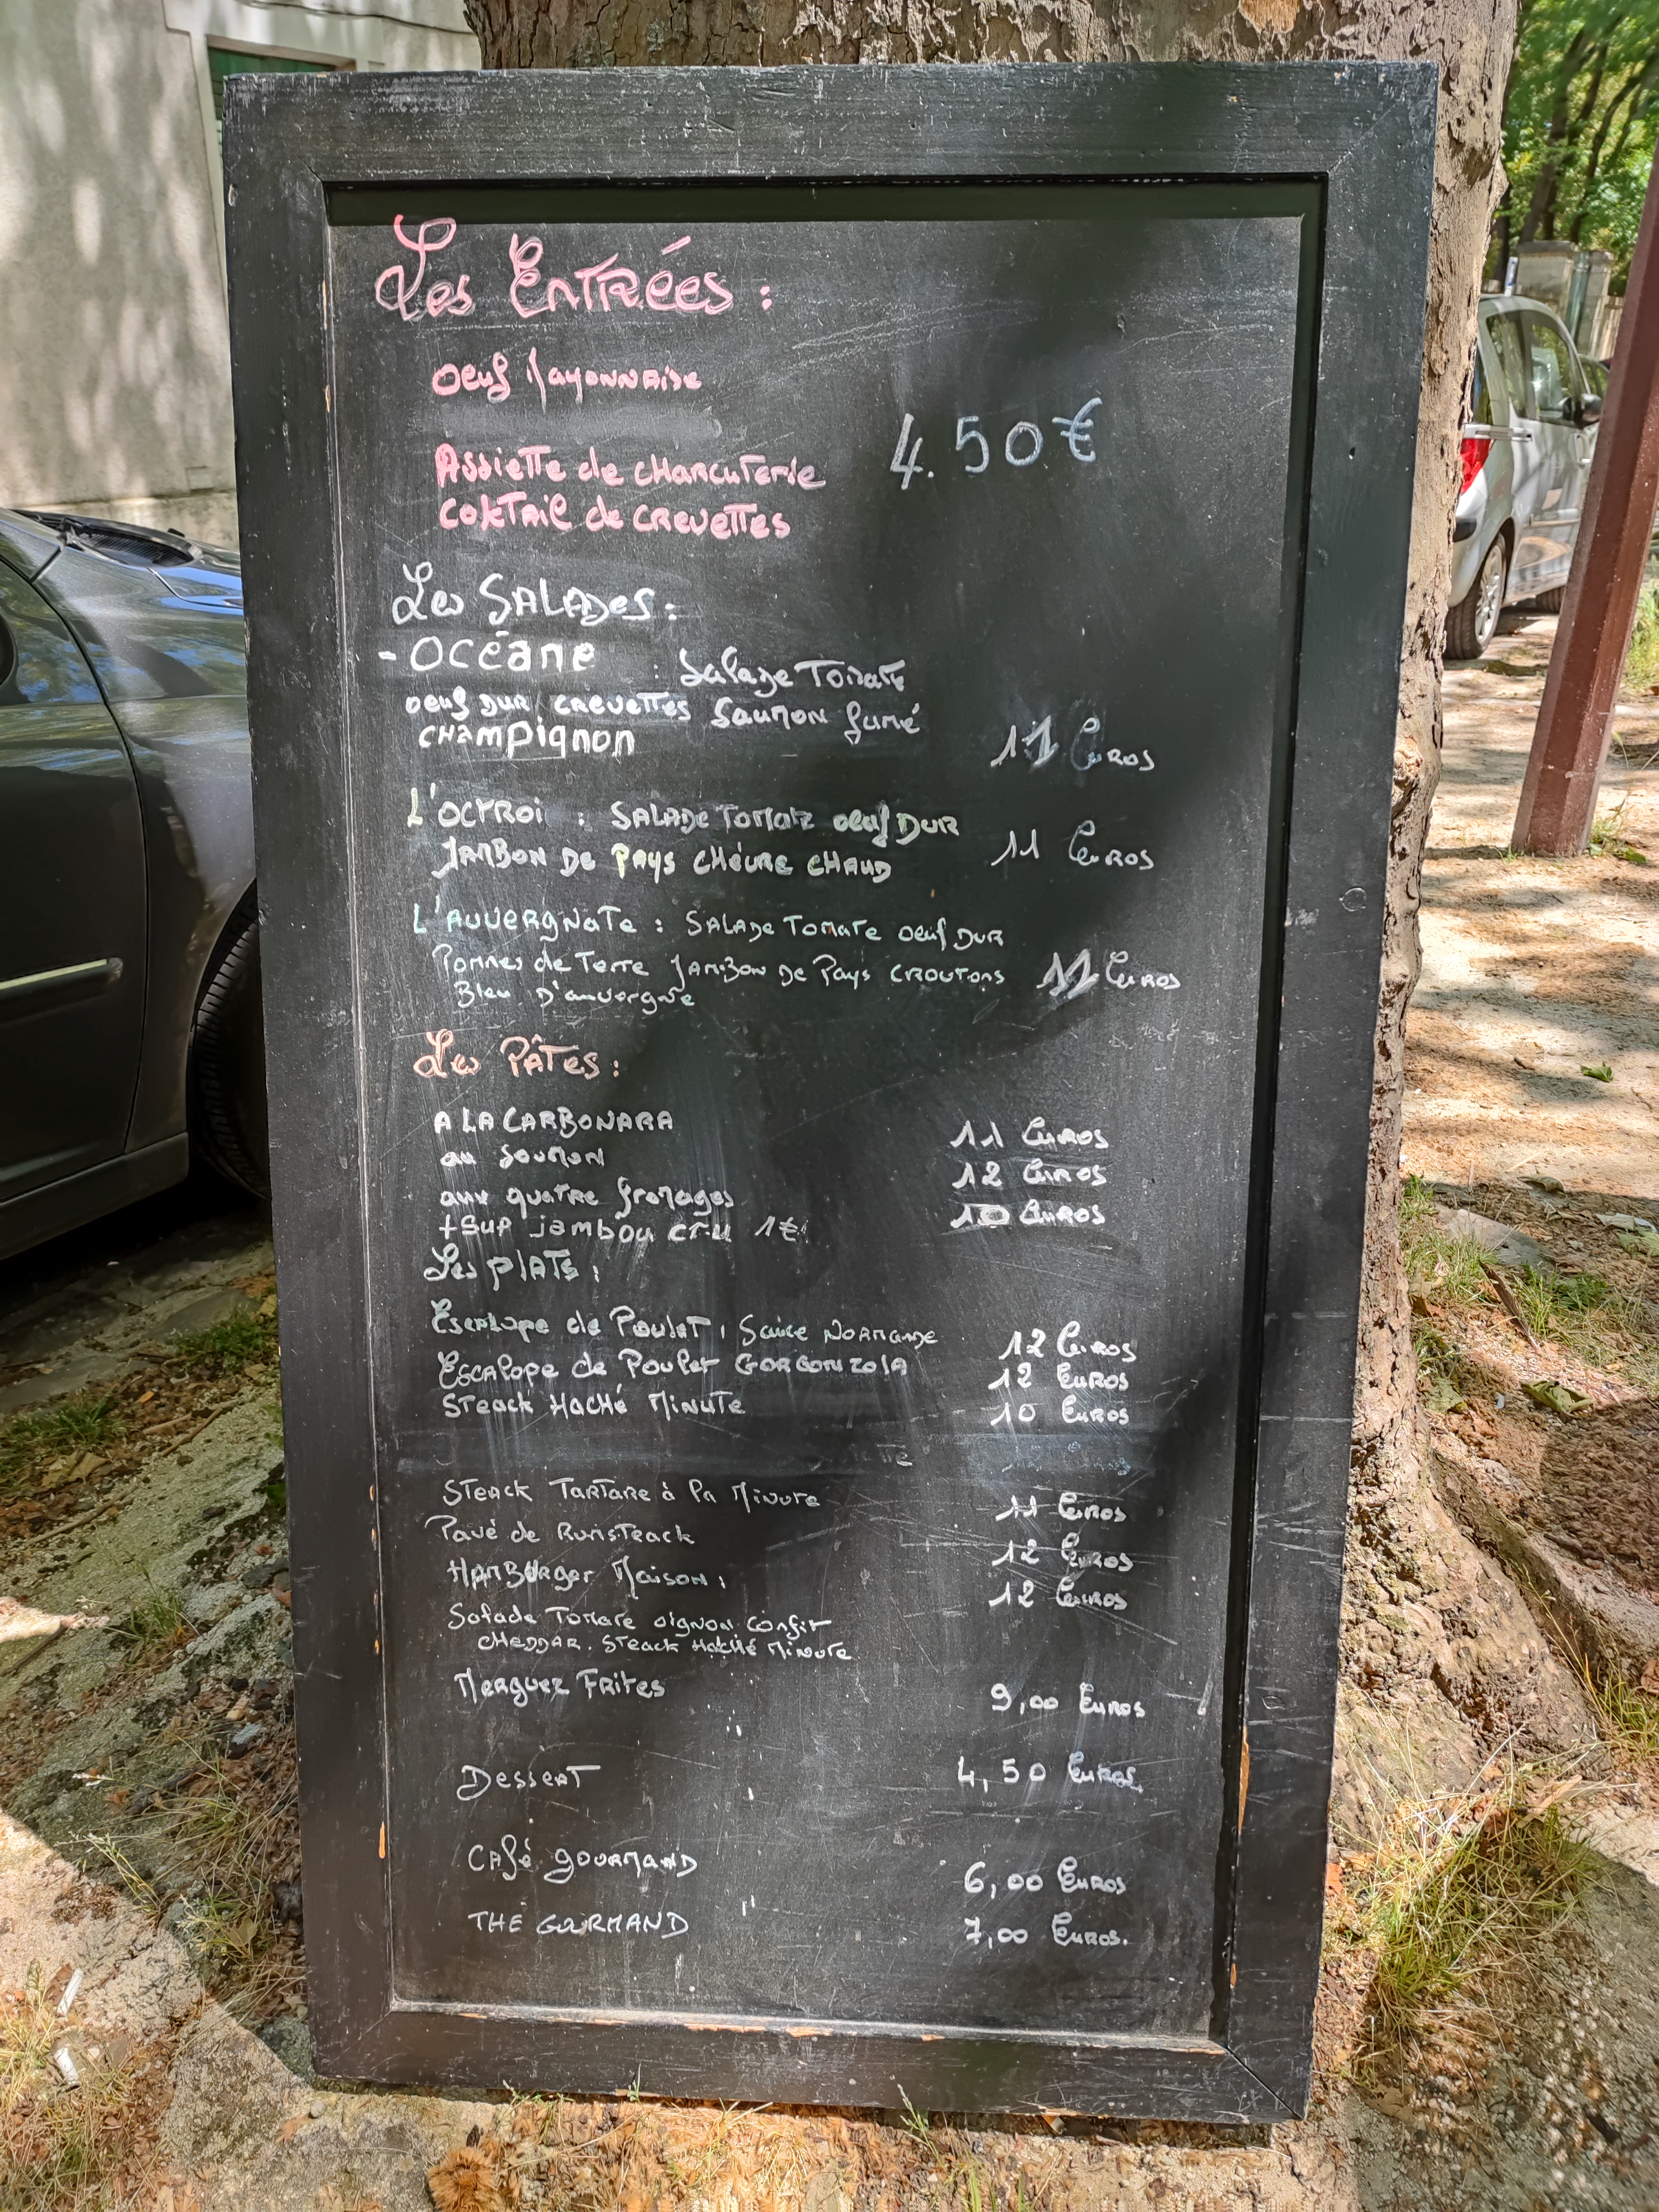 Les Entrées :
Oeuf Mayonnaise
4.50€
Assiette de charcuterie
coktail de crevettes
Les Salades :
- Océane : Salade Tomate
oeuf dur crevettes Saumon fumé
champignon
11 Euros
L'OCTROI : SALADE Tomate oeuf DUR
JAMBON DE PAYS CHÈVRE CHAUD 11 Euros
L'Auvergnate : SALADE Tomate oeuf DUR
Pommes de Terre JAMBON DE Pays CROUTONS 11 Euros
Bleu D'auvergne
Les Pâtes :
A LA CARBONARA 11 Euros
au Saumon 12 Euros
aux quatre fromages 10 Euros
+Sup jambon cru 1€
Les plats :
Escalope de Poulet, Sauce Normande 12 Euros
Escalope de Poulet GORGONZOLA 12 Euros
STEACK HACHÉ MINUTE 10 Euros
STEACK TARTARE à la Minute 11 Euros
Pavé de Rumsteack 12 Euros
HAMBURger Maison : 12 Euros
Salade Tomate oignon confit
CHEDDAR. Steack HACHÉ Minute
Merguez Frites 9,00 Euros
Dessert 4,50 Euros
Café gourmand 6,00 Euros
THE GOURMAND 7,00 Euros.